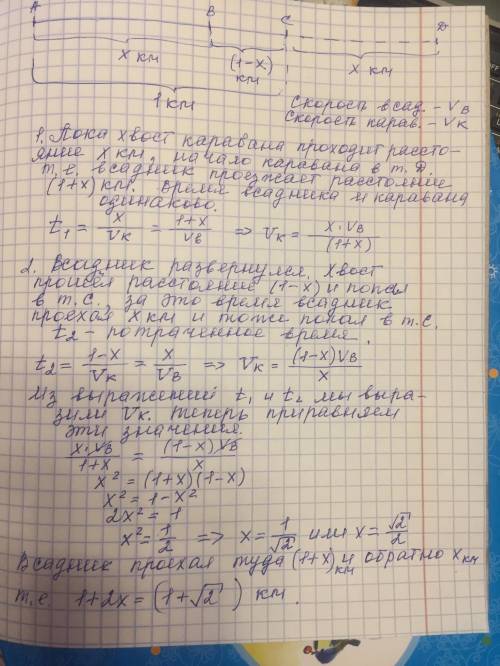 A B C D
x км (1-x) км x км
1 км
Скорость всад. - Vв
Скорость карав. - Vк
1. Пока хвост каравана проходит рассто-
яние x км, начало каравана в т. D.
т.е. всадник проезжает расстояние
(1+x) км. Время всадника и каравана
одинаково.
t₁ = x/Vк = (1+x)/Vв => Vк = x·Vв/(1+x)
2. Всадник развернулся. Хвост
прошел расстояние (1-x) и попал
в т.С., за это время всадник
проехал x км и тоже попал в т.С.
t₂ - потраченное время.
t₂ = (1-x)/Vк = x/Vв => Vк = (1-x)Vв/x
Из выражений t₁ и t₂ мы выра-
зили Vк. Теперь приравняем
эти значения.
x·Vв/(1+x) = (1-x)Vв/x
x² = (1+x)(1-x)
x² = 1-x²
2x² = 1
x² = 1/2 => x = 1/√2 или x = √2/2
Всадник проехал туда (1+x) км и обратно x км
т.е. 1+2x = (1+√2) км.